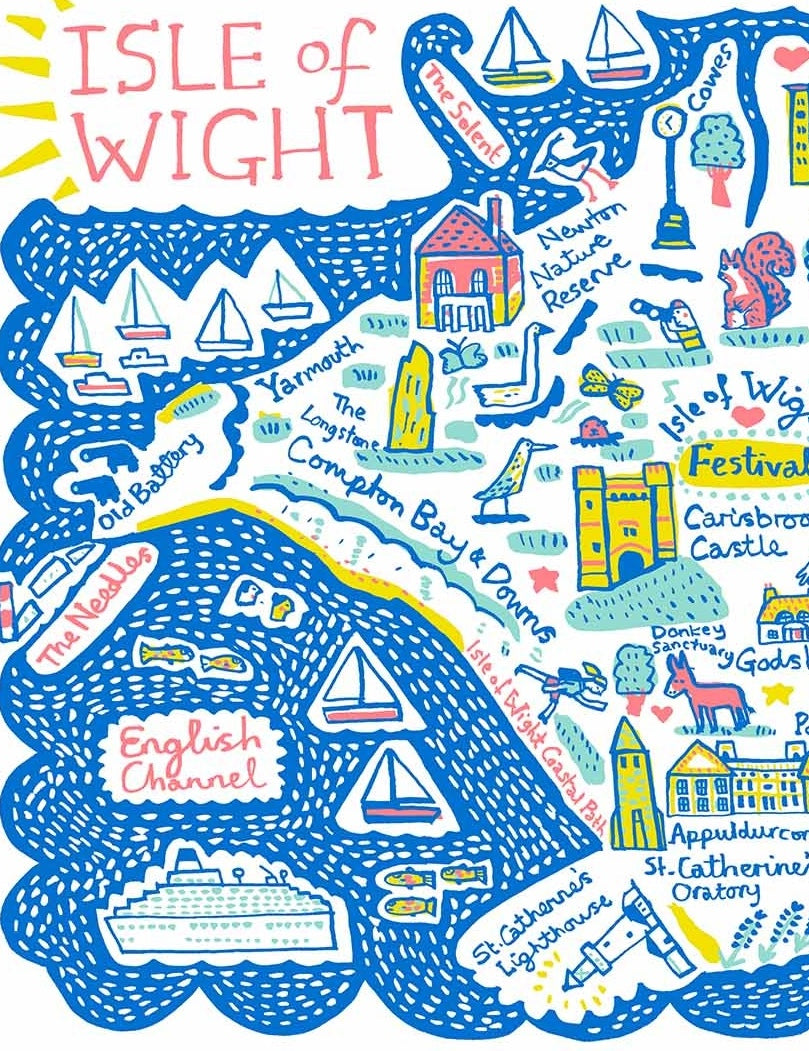 ISLE of
WIGHT
The Solent
Cowes
Newton
Nature
Reserve
Yarmouth
The
Longstone
Isle of Wig
Festival
Old Battery
Compton Bay & Downs
Carisbroo
Castle
The Needles
Donkey
Sanctuary
Gods
Isle of Wight Coastal Path
English
Channel
Appuldurcom
St. Catherine
Oratory
St. Catherine's
Lighthouse